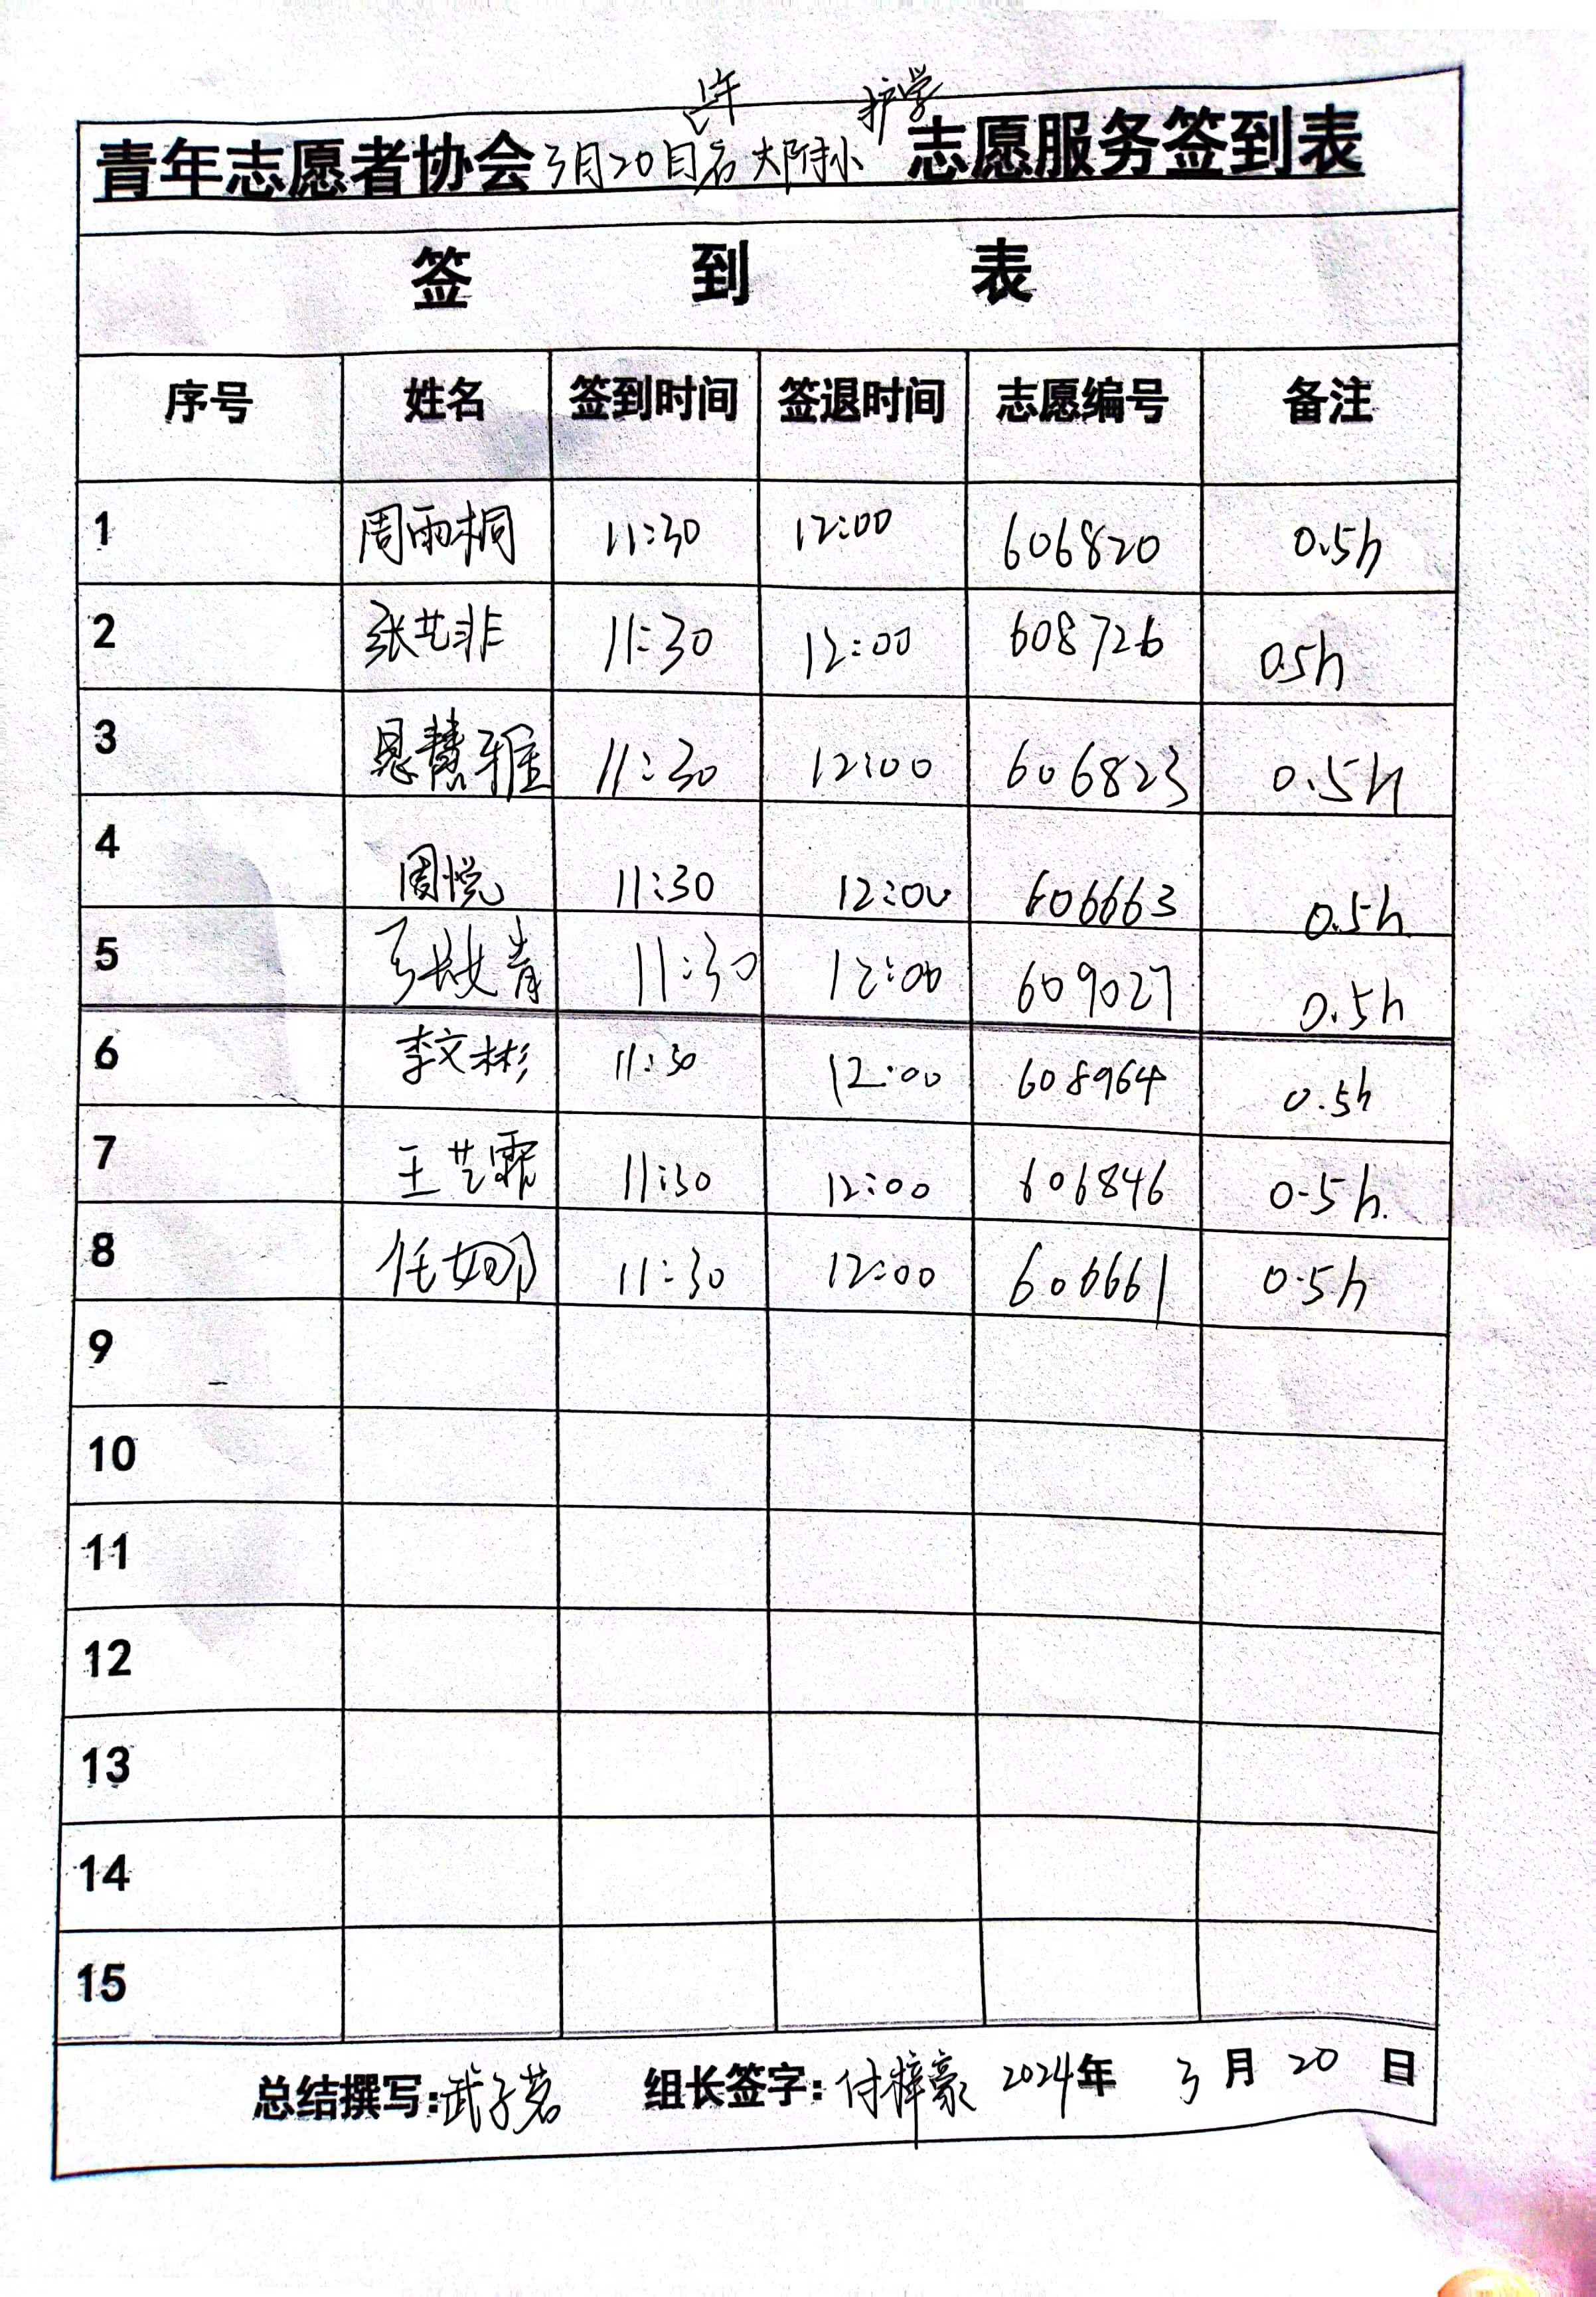 上午 护学
青年志愿者协会3月20日石大附小志愿服务签到表
签 到 表
序号 姓名 签到时间 签退时间 志愿编号 备注
1 周雨桐 11:30 12:00 606820 0.5h
2 张艺非 11:30 12:00 608726 0.5h
3 恩慧雅 11:30 12:00 606823 0.5h
4 周悦 11:30 12:00 606663 0.5h
5 张文青 11:30 12:00 609027 0.5h
6 李文彬 11:30 12:00 608964 0.5h
7 王艺霏 11:30 12:00 606846 0.5h.
8 任娜 11:30 12:00 606661 0.5h
9
10
11
12
13
14
15
总结撰写:武子茗 组长签字:付梓豪 2024年 3月 20 日